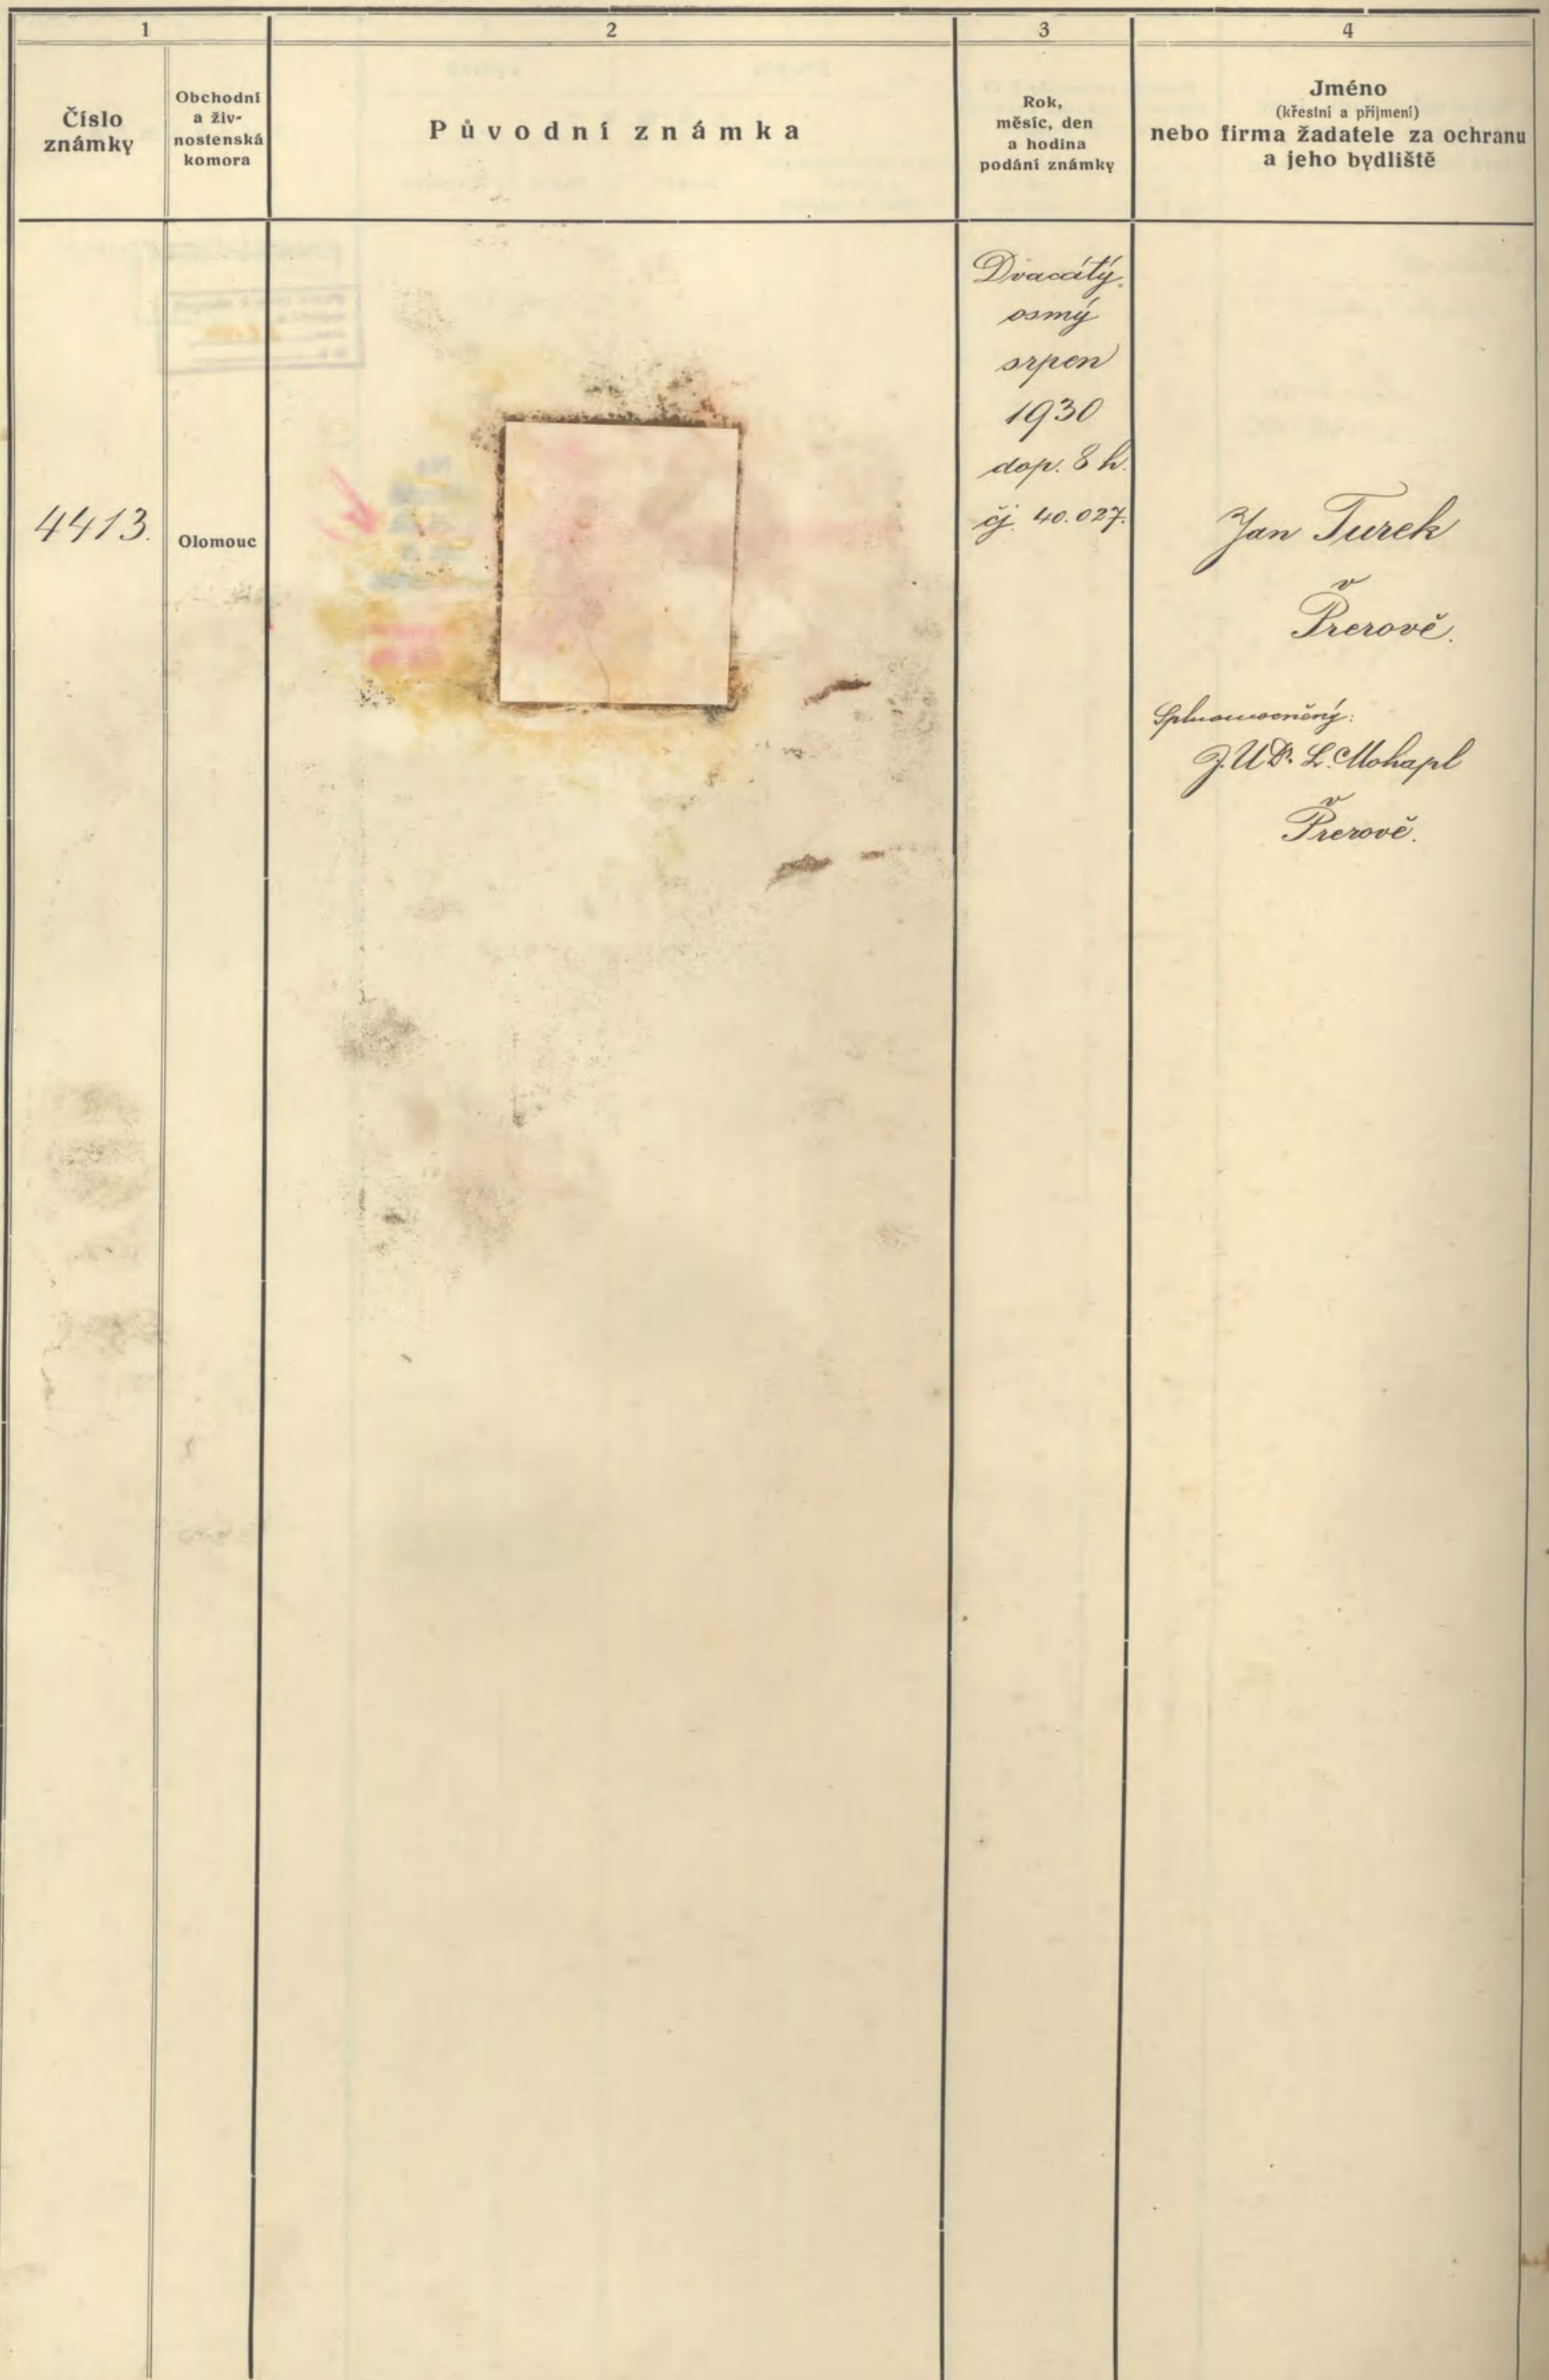 1
2
3
4
Číslo
známky
Obchodní
a živ-
nostenská
komora
Původní známka
Rok,
měsíc, den
a hodina
podání známky
Jméno
(křestní a příjmení)
nebo firma žadatele za ochranu
a jeho bydliště
4413.
Olomouc
Dvacátý
osmý
srpen
1930
dop. 8 h.
čj. 40.027.
Jan Turek
v
Přerově.
Splnomocněný:
J.U.Dr. L. Mohapl
v
Přerově.